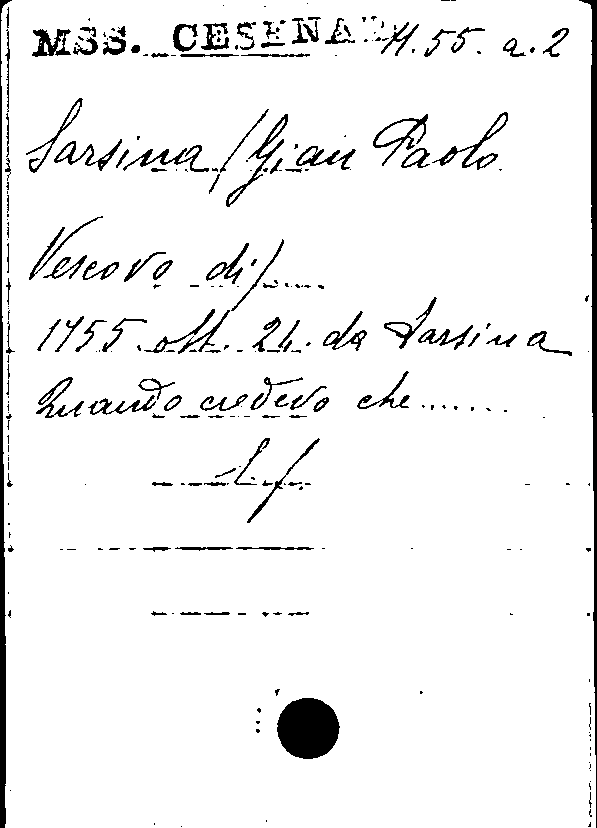 MSS. CESENA H. 55. a. 2
Sarsina / Gian Paolo
Vescovo di /......
1755. ott. 24. da Sarsina
Quando credevo che.......
L. f.